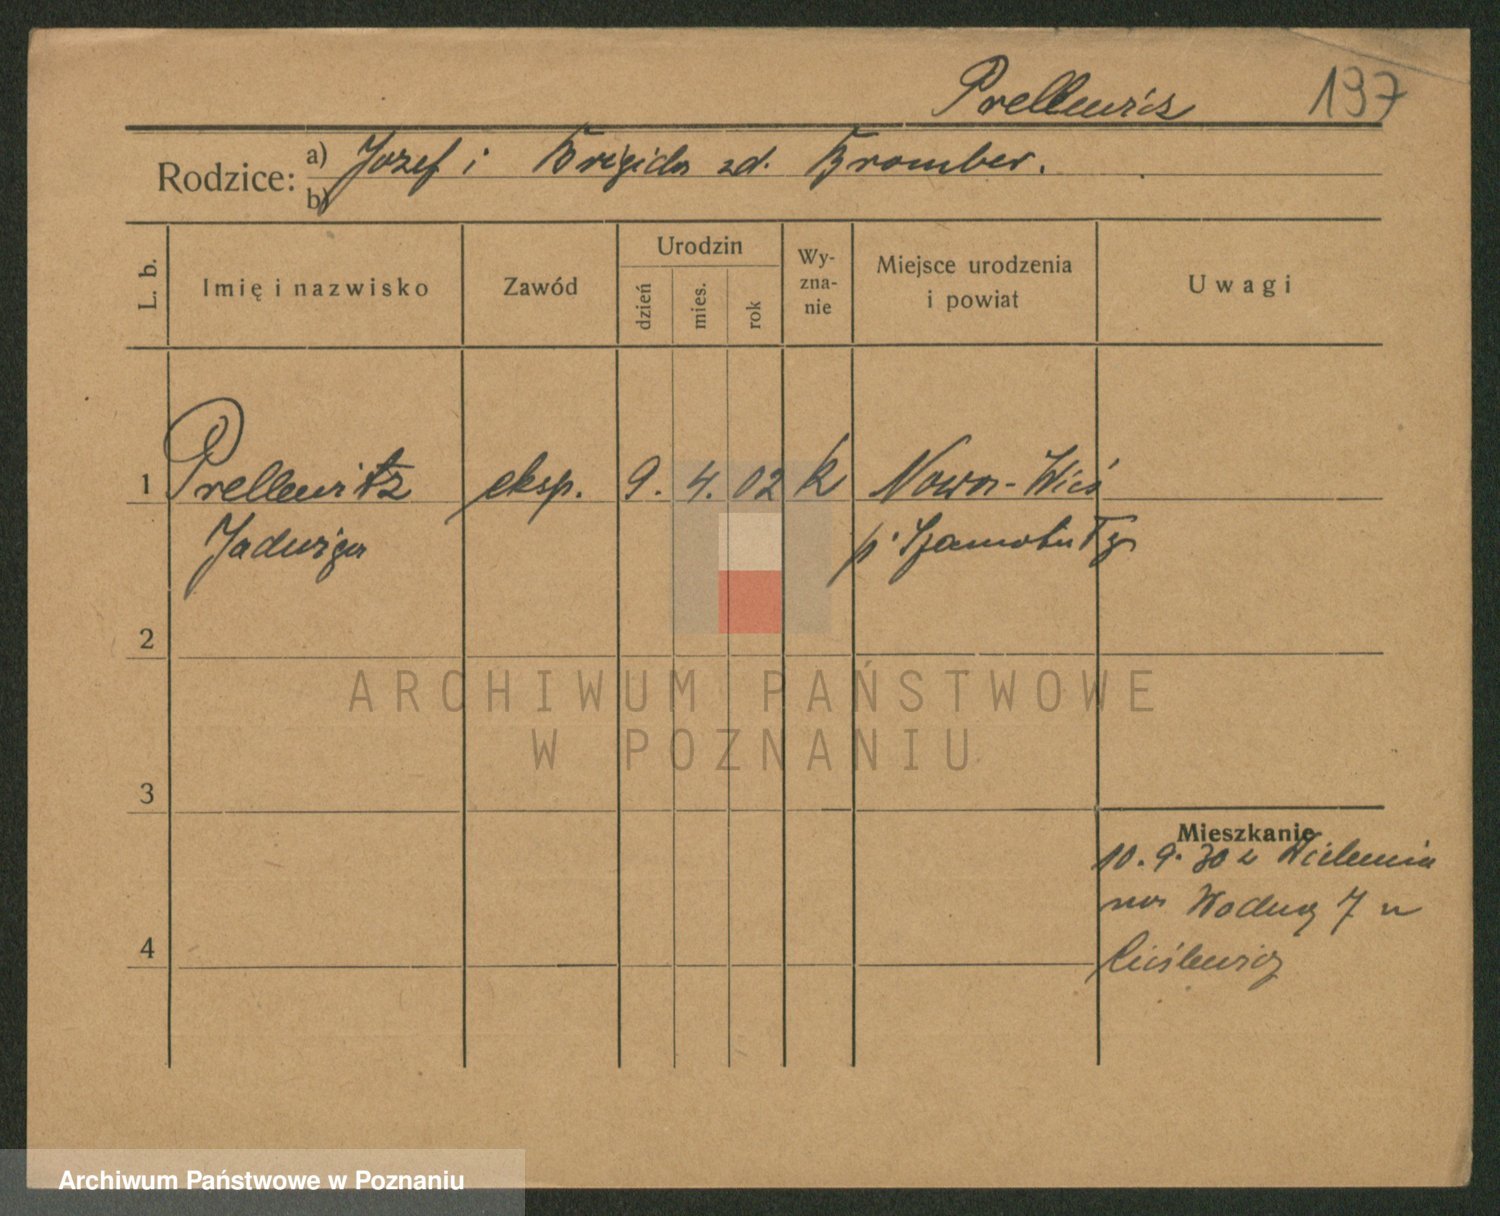 Prellewicz 197
Rodzice: a) Jozef i Brygida zd. Bromber.
b)
L. b.
Imię i nazwisko
Zawód
Urodzin
dzień
mies.
rok
Wy-
zna-
nie
Miejsce urodzenia
i powiat
Uwagi
1 Prellewitz eksp. 9. 4. 02 k Nowa-Wieś
Jadwiga p. Szamotuły
2
3
4
Mieszkanie
10.9.30 z
Wodna 7 u
Cieślewicz
ARCHIWUM PAŃSTWOWE
W POZNANIU
Archiwum Państwowe w Poznaniu